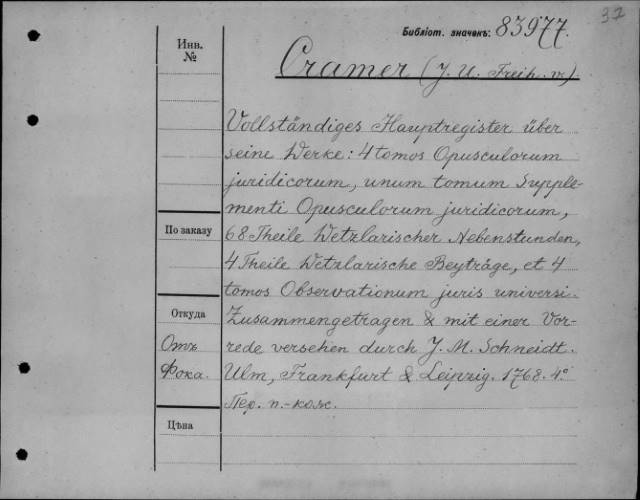 37
Библіот. значекъ: 83977.
Инв.
№
Cramer (J. U. Freih. v.)
Vollständiges Hauptregister über
seine Werke: 4 tomos Opusculorum
juridicorum, unum tomum Supple-
menti Opusculorum juridicorum,
По заказу
68 Theile Wetzlarischer Nebenstunden,
4 Theile Wetzlarische Beyträge, et 4
tomos Observationum juris universi.
Откуда
Zusammengetragen & mit einer Vor-
Отъ
rede versehen durch J. M. Schneidt.
Фока.
Ulm, Frankfurt & Leipzig. 1768. 4º
Пер. п.-кож.
Цѣна